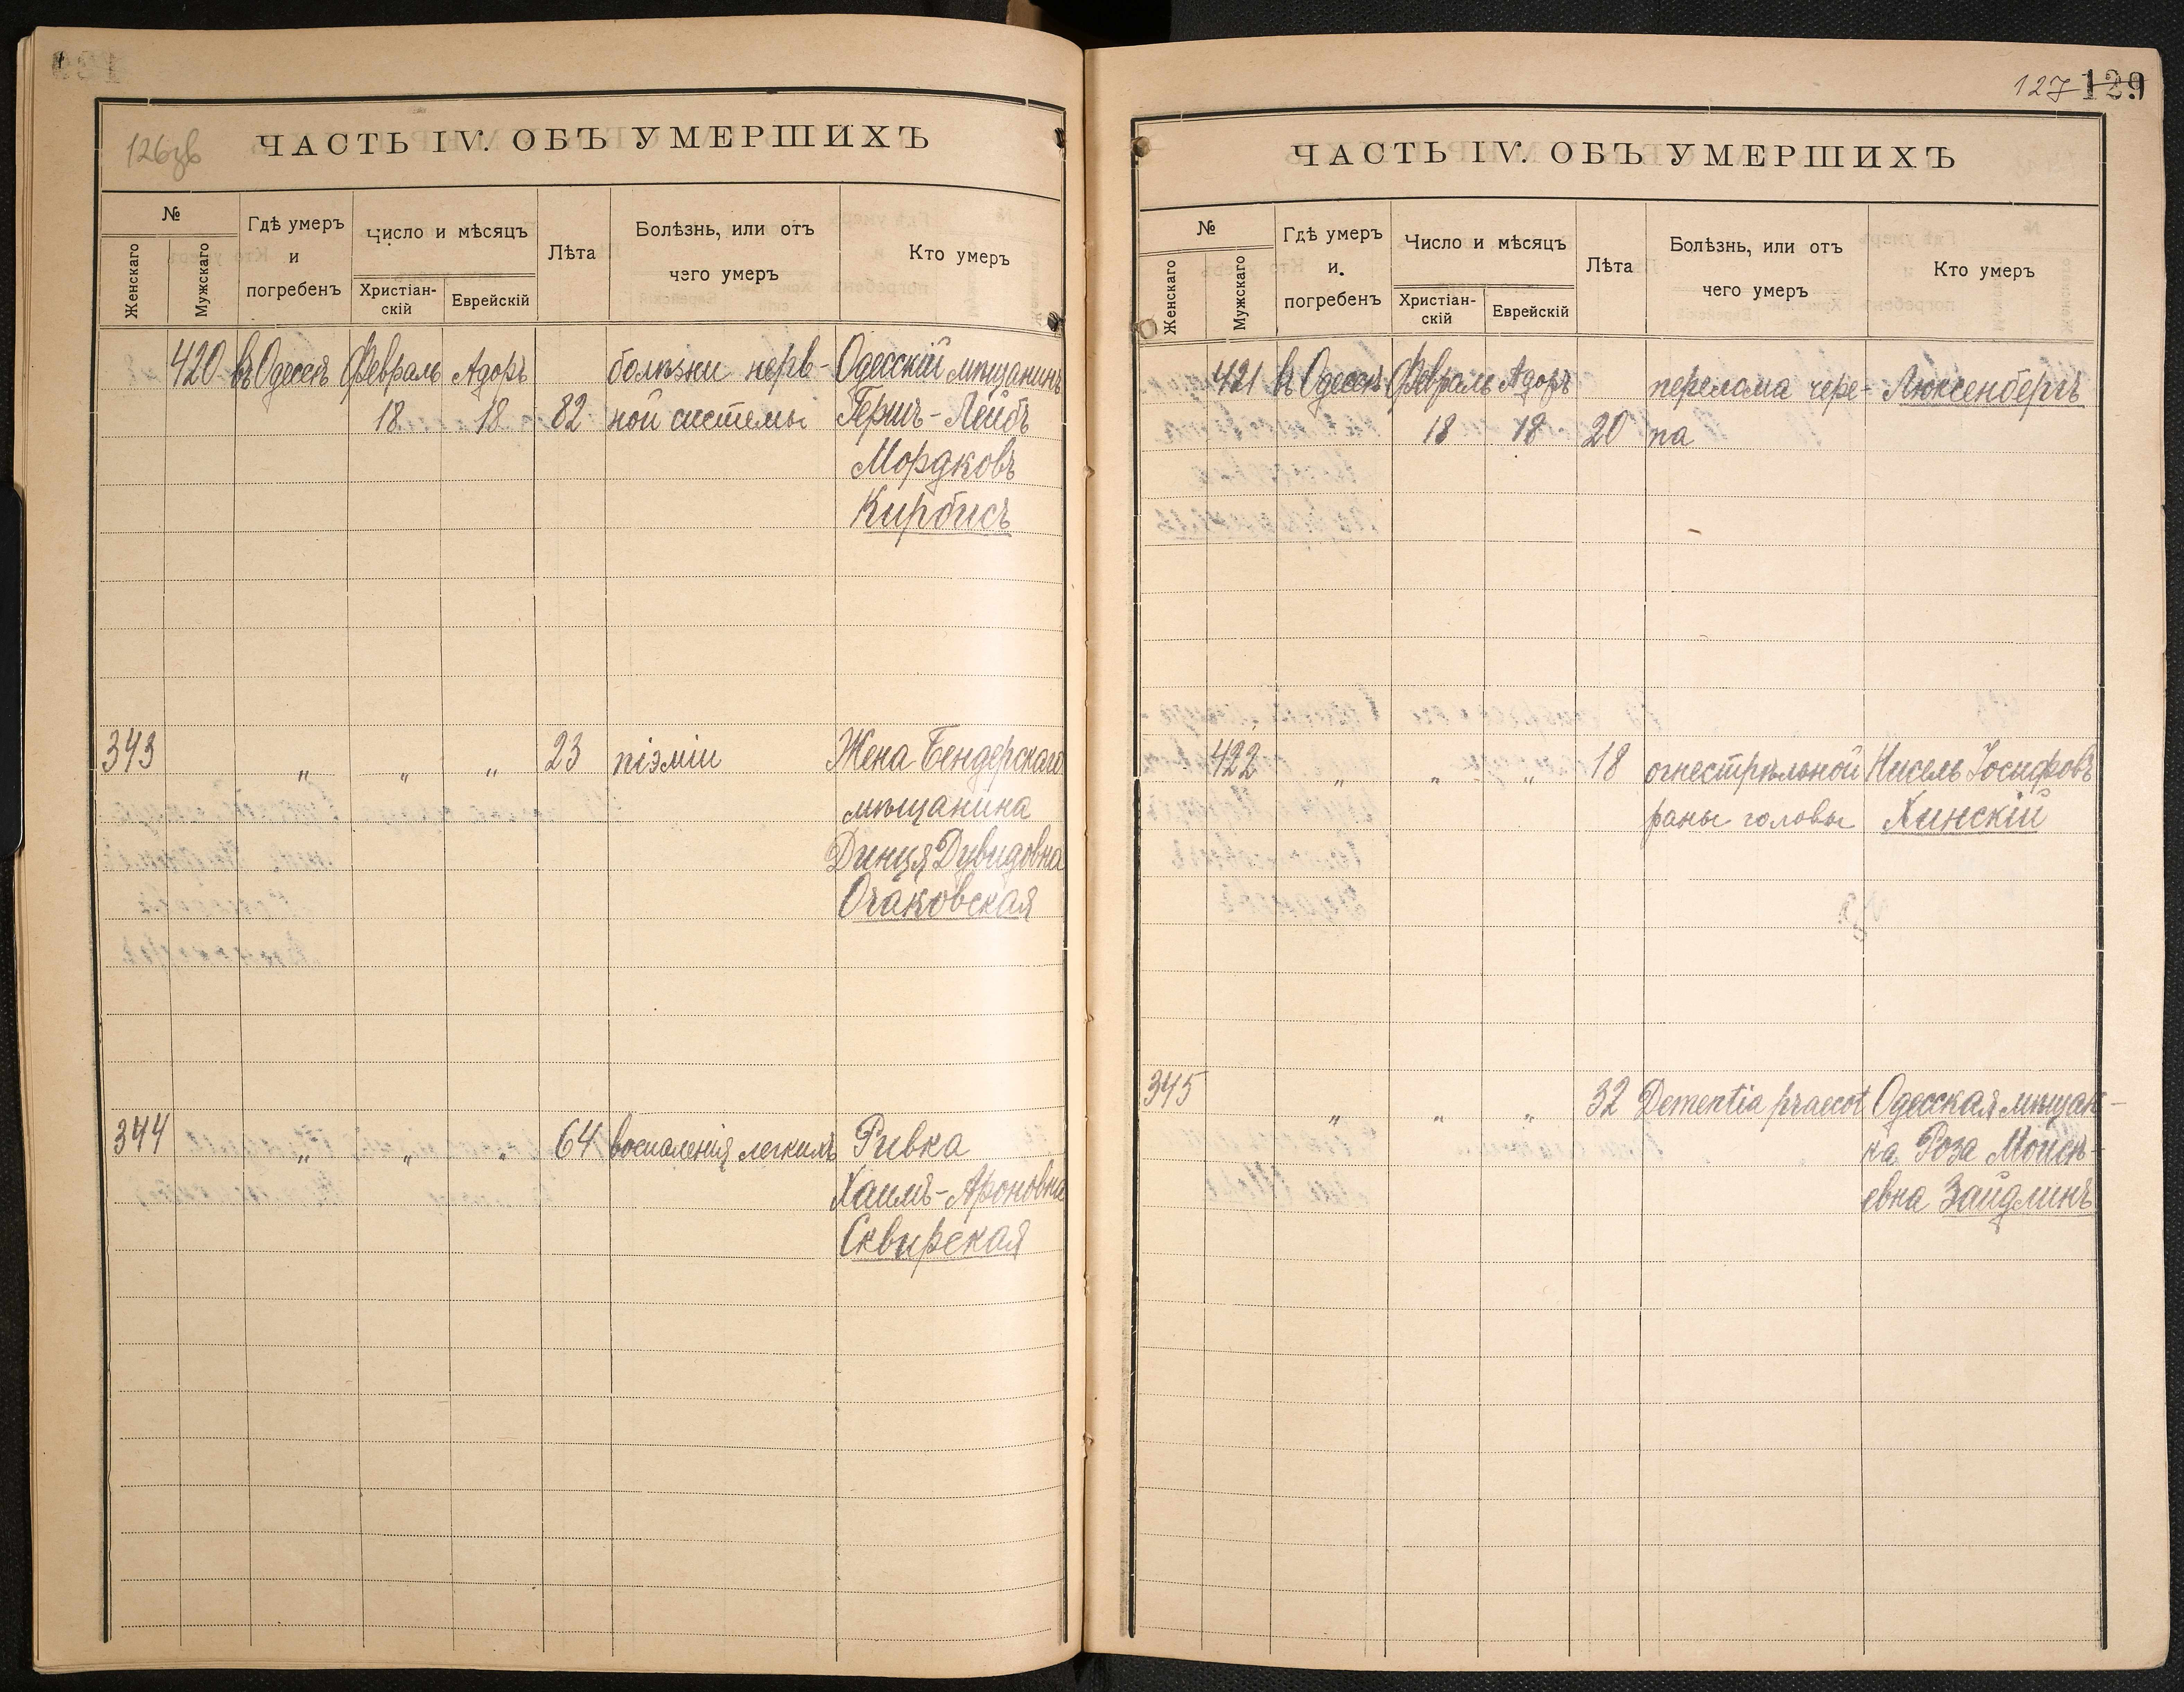 126зв
ЧАСТЬ IV. ОБЪ УМЕРШИХЪ
№
Женскаго
Мужскаго
Гдѣ умеръ
и
погребенъ
Число и мѣсяцъ
Христіан-
скій
Еврейскій
Лѣта
Болѣзнь, или отъ
чего умеръ
Кто умеръ
420 въ Одессѣ Февраль Адоръ болѣзни нерв- Одесскій мѣщанинъ
18 18 82 ной системы Гершъ-Лейбъ
Мордковъ
Кирбисъ
343 „ „ „ 23 піэміи Жена Бендерскаго
мѣщанина
Динця Дувидовна
Очаковская
344 „ „ „ 64 воспаленія легкихъ Ривка
Хаимъ-Ароновна
Сквирская
127 129
ЧАСТЬ IV. ОБЪ УМЕРШИХЪ
№
Женскаго
Мужскаго
Гдѣ умеръ
и.
погребенъ
Число и мѣсяцъ
Христіан-
скій
Еврейскій
Лѣта
Болѣзнь, или отъ
чего умеръ
Кто умеръ
421 въ Одессѣ Февраль Адоръ перелома чере- Люксенбергъ
18 18 20 па
422 „ „ „ 18 огнестрѣльной Нисель Іосифовъ
раны головы Хинскій
345 „ „ „ 32 Dementia praecox Одесская мѣщан-
ка Роза Моисѣ-
евна Зайдлинъ